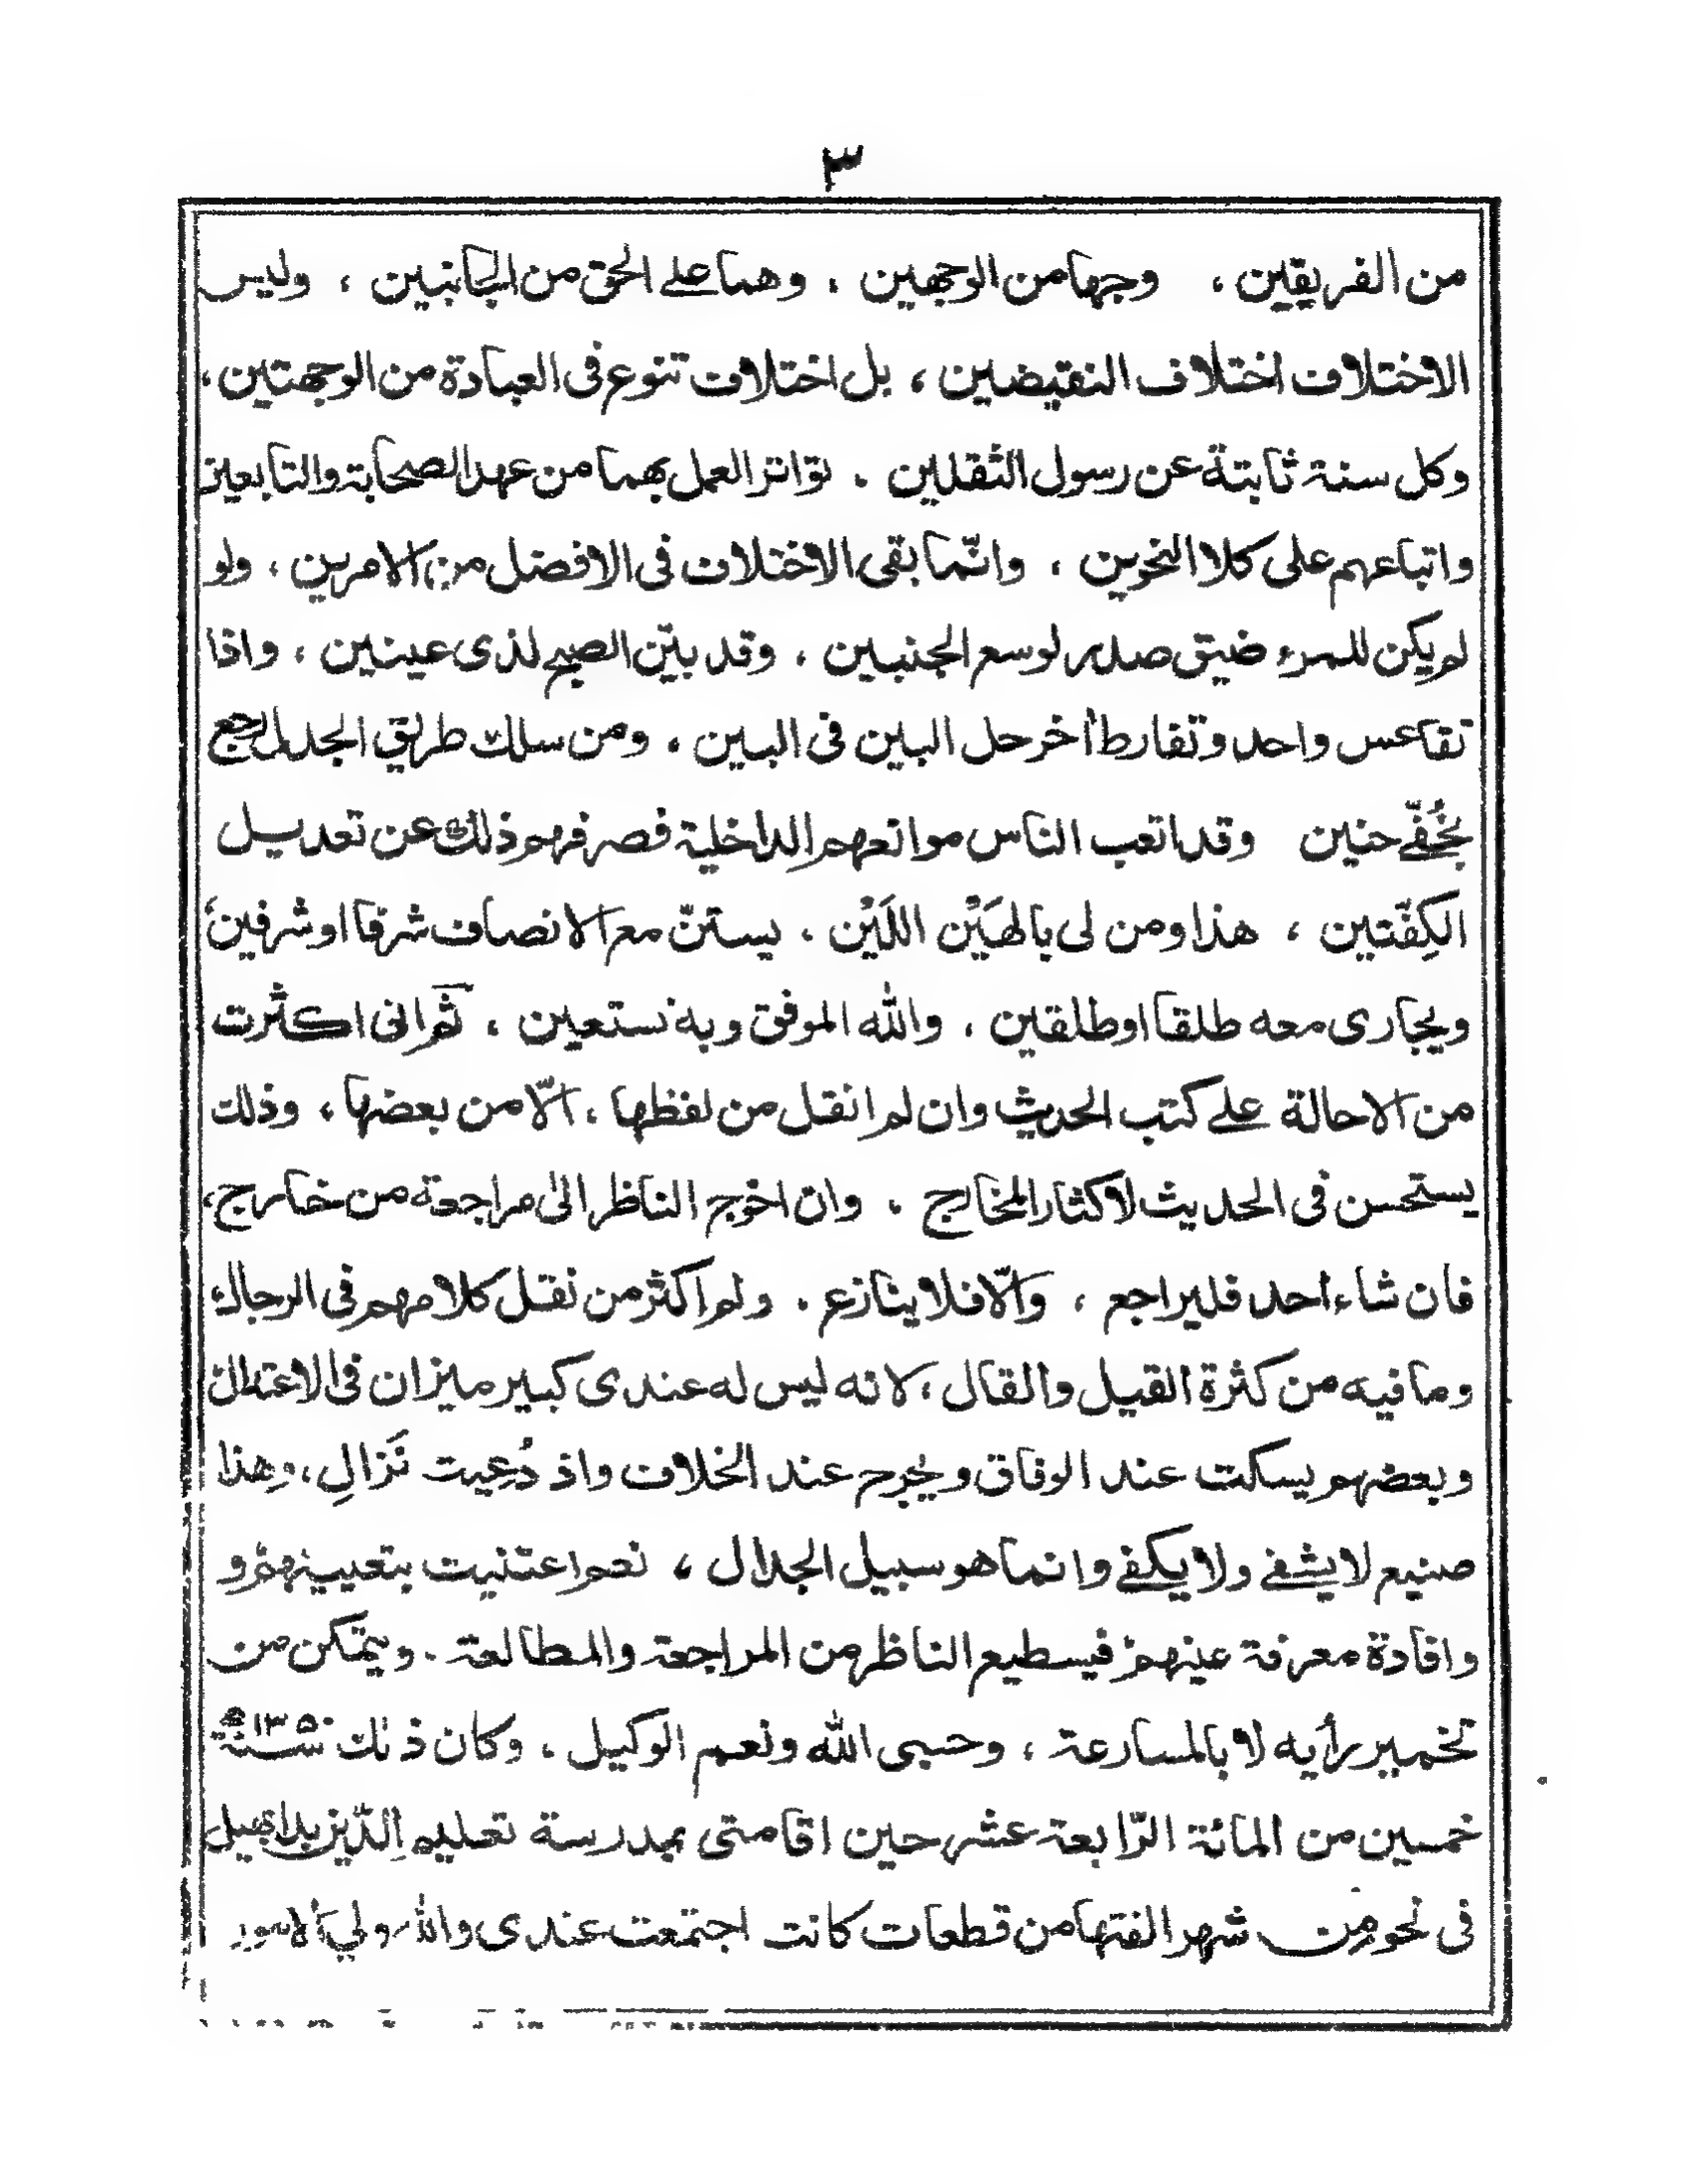 ٣
من الفريقين ، وجها من الوجهين ، وهما على الحق من الجانبين ، وليس
الاختلاف اختلاف النقيضين ، بل اختلاف تنوع فى العبادة من الوجهتين ،
وكل سنة ثابتة عن رسول الثقلين . تواتر العمل بهما من عهد الصحابة والتابعين
واتباعهم على كلا النحوين ، وانّما بقى الاختلاف فى الافضل من الامرين ، ولو
لم يكن للمرء ضيق صدر لوسع الجنبين ، وقد بيّن الصبح لذى عينين ، واذا
تقاعس واحد وتفارط أخر حل البين فى البين ، ومن سلك طريق الجدال رجع
بخُفّي حنين وقد اتعب الناس موانعهم الداخلية فصرفهم ذلك عن تعديل
الكِفّتين ، هذا ومن لى بالهَيْن اللَيْن ، يستنّ مع الانصاف شرفا او شرفين
ويجارى معه طلقا او طلقين ، والله الموفق وبه نستعين ، ثم انى اكثرت
من الاحالة على كتب الحديث وان لم انقل من لفظها ، الّا من بعضها ، وذلك
يستحسن فى الحديث لاكثار المخارج ، وان اخوج الناظر الى مراجعة من خارج ،
فان شاء احد فليراجع ، والّا فلا ينازع ، ولم اكثر من نقل كلامهم فى الرجال
وما فيه من كثرة القيل والقال ، لانه ليس له عندى كبير ميزان فى الاعتدال
وبعضهم يسكت عند الوفاق ويجرح عند الخلاف واذ دُعِيت نَزالِ ، وهذا
صنيع لا يشفي ولا يكفي وانما هو سبيل الجدال ، نعم اعتنيت بتعيينهم و
وافادة معرفة عينهم فيسطيع الناظر من المراجعة والمطالعة . ويتمكن من
تخمير رأيه لا بالمسارعة ، وحسبى الله ونعم الوكيل ، وكان ذلك سنة ١٣٥٠ه
خمسين من المائة الرّابعة عشر حين اقامتى بمدرسة تعليم الدّين بدابهيل
فى نحو من شهر الفتها من قطعات كانت اجتمعت عندى والله ولي الامور